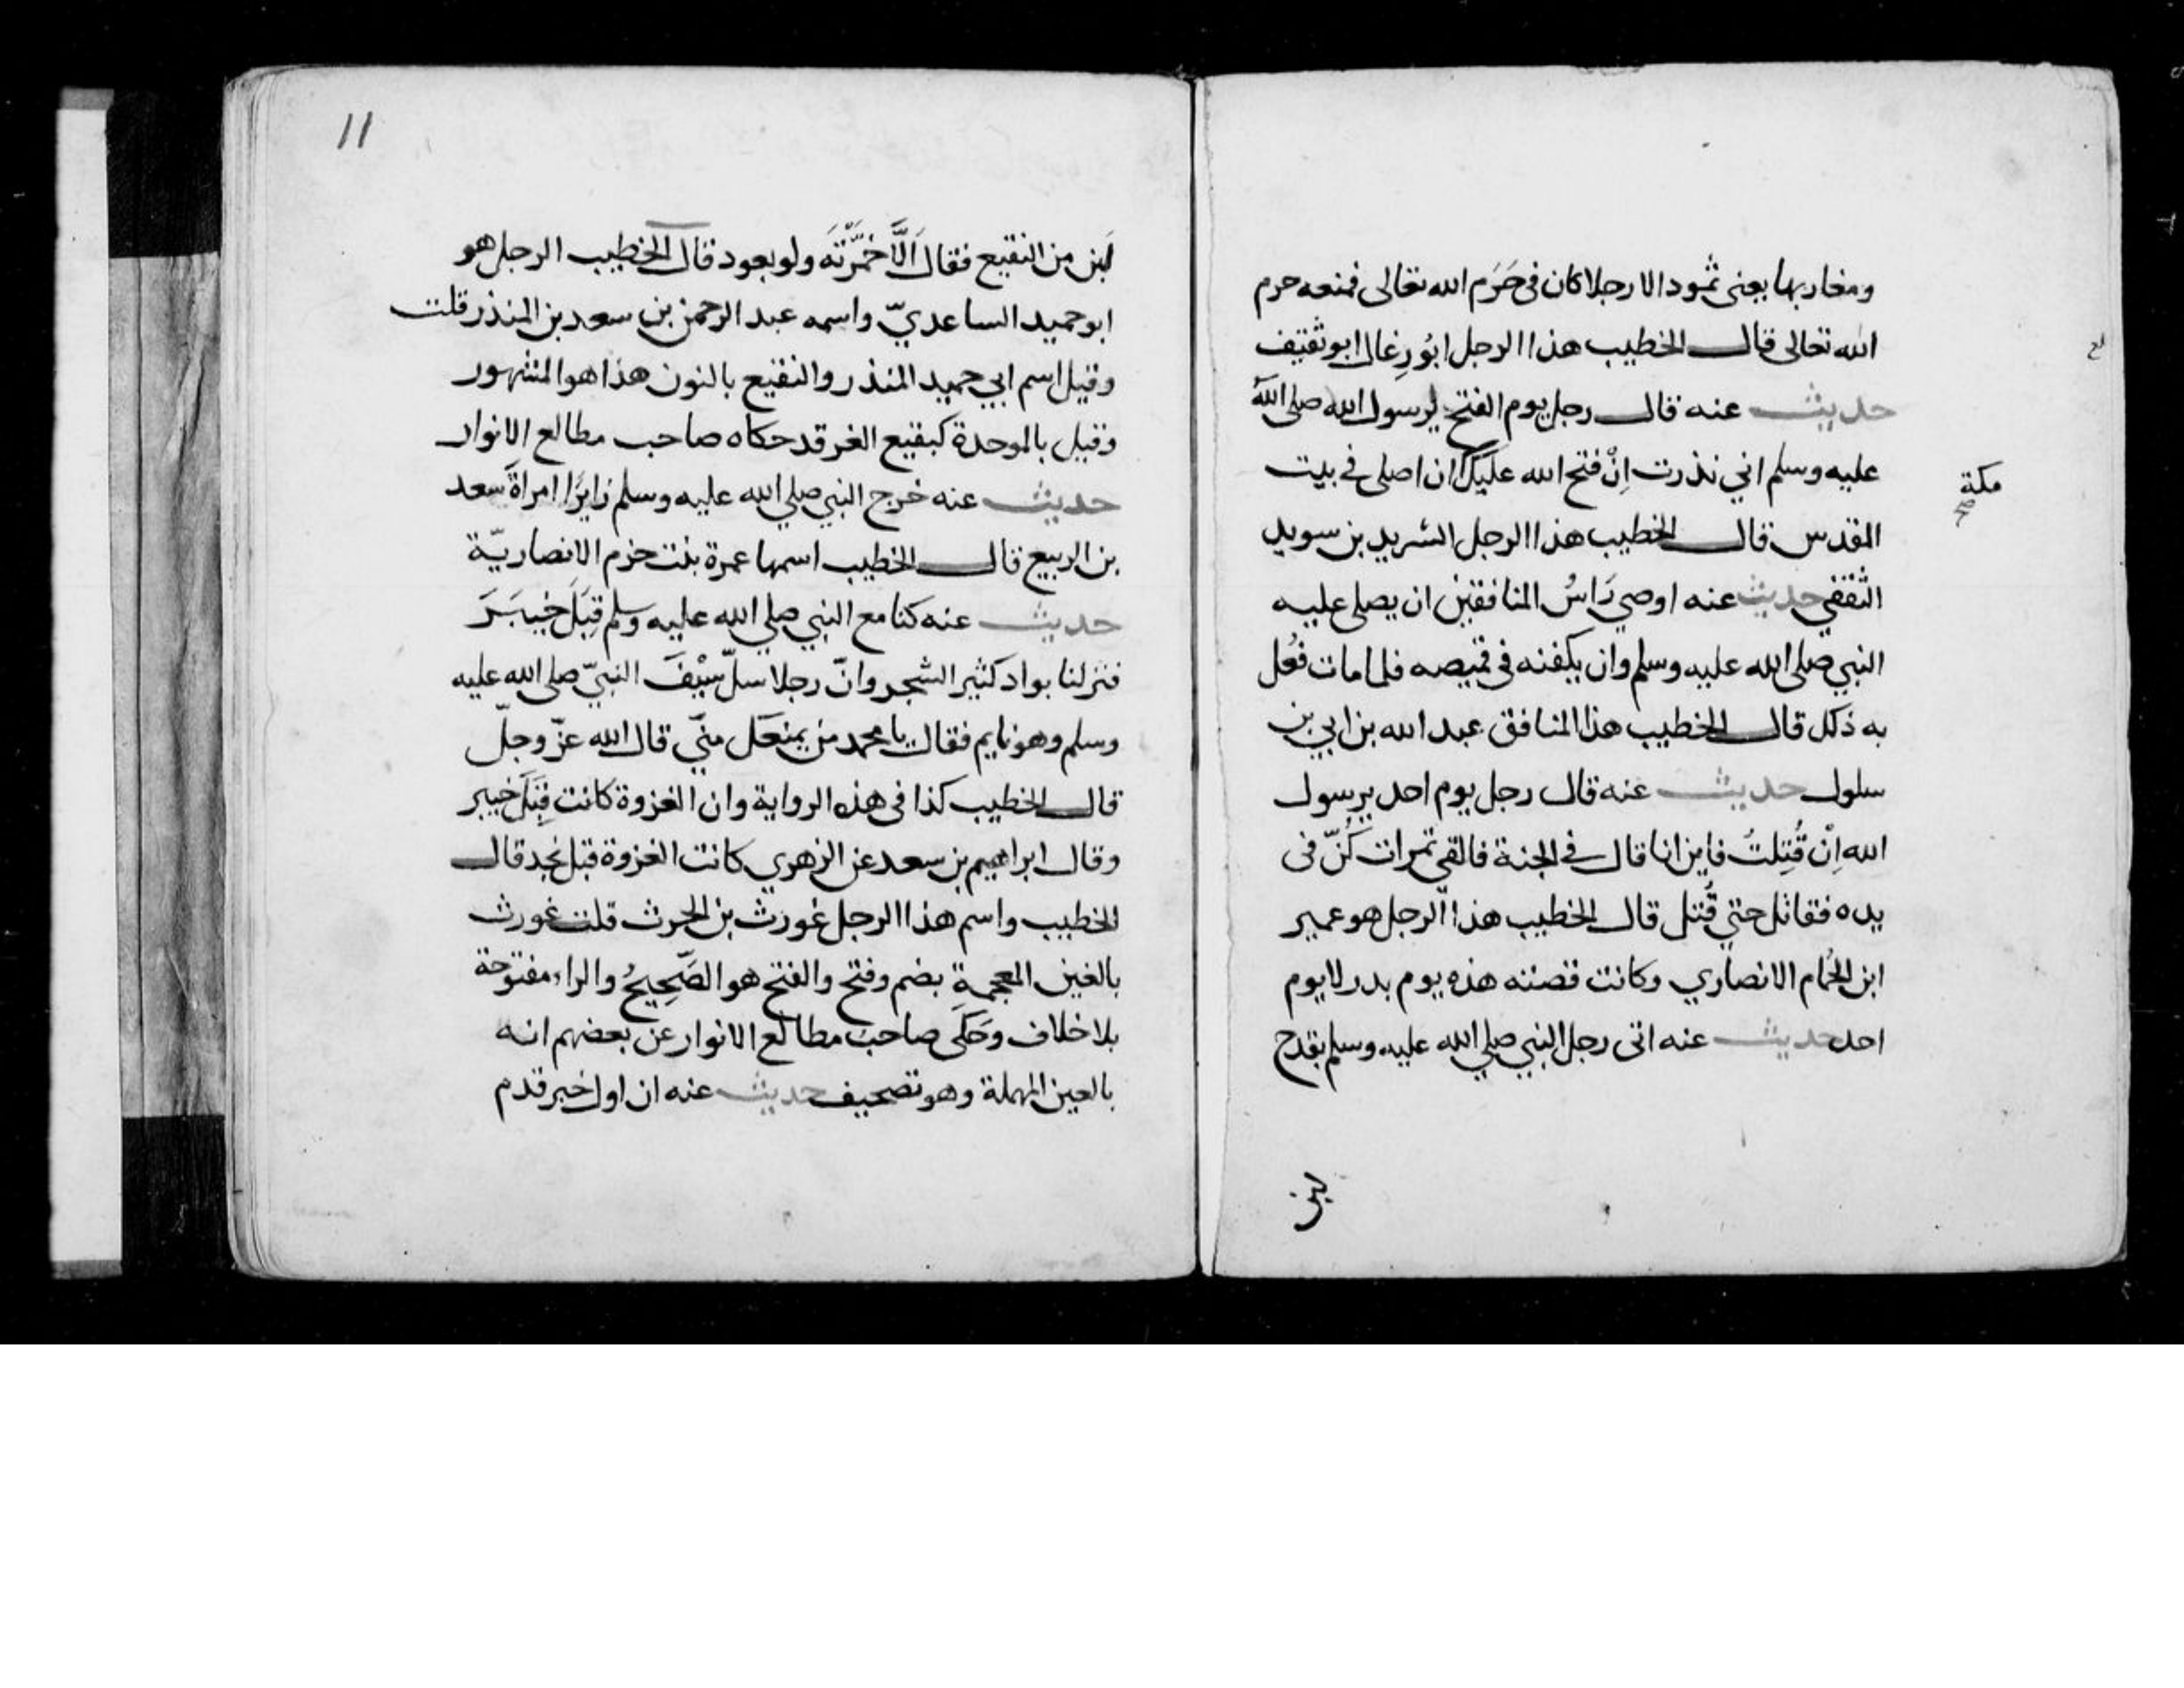 ومغاربها يعنى ثمود الا رجلا كان في حَرَم الله تعالى فمنعه حرم
الله تعالى قال الخطيب هذا الرجل ابُو رِغال ابو ثقيف
حديث عنه قال رجل يوم الفتح لرسول الله صلى الله
عليه وسلم اني نذرت اِنْ فتح الله عليك ان اصلى في بيت
مكة
صح
المقدس قال الخطيب هذا الرجل الشريد بن سويد
الثقفي حديث عنه اوصي رَاسُ المنافقين ان يصلى عليه
النبي صلى الله عليه وسلم وان يكفنه في قميصه فلما مات فُعل
به ذلك قال الخطيب هذا المنافق عبد الله بن ابي بن
سلول حديث عنه قال رجل يوم احد يرسول
الله اِنْ قُتِلتُ فاين انا قال في الجنة فالقي تمرات كُنّ في
يده فقاتل حتي قُتل قال الخطيب هذا الرجل هو عمير
ابن الحُمام الانصاري وكانت قصته هذه يوم بدر لا يوم
احد حديث عنه اتى رجل النبي صلي الله عليه وسلم بقدح
لبن
11
لَبن من النقيع فقال اَلَّا خَمَّرْتَهَ ولو بعود قال الخطيب الرجل هو
ابو حميد الساعديّ واسمه عبد الرحمن بن سعد بن المنذر قلت
وقيل اسم ابي حميد المنذر والنقيع بالنون هذا هو المشهور
وقيل بالموحدة كبقيع الغرقد حكاه صاحب مطالع الانوار
حديث عنه خرج النبي صلي الله عليه وسلم زايرًا امراةَ سعد
بن الربيع قال الخطيب اسمها عمرة بنت حزم الانصاريّة
حديث عنه كنا مع النبي صلي الله عليه وسلم قِبَلَ خيبَرَ
فنزلنا بواد كثير الشجر وانّ رجلا سلّ سَيْفَ النبيّ صلى الله عليه
وسلم وهو نايم فقال يا محمد من يمنعك منّي قال الله عزّ وجلّ
قال الخطيب كذا في هذه الرواية وان الغزوة كانت قِبَلَ خيبر
وقال ابراهيم بن سعد عن الزهري كانت الغزوة قبل نجد قال
الخطيب واسم هذا الرجل غورث بن الحرث قلت غورث
بالغين المعجمةِ بضم وفتح والفتح هو الصَّحِيحُ والراء مفتوحة
بلا خلاف وَحَكَى صاحب مطالع الانوار عن بعضهم انه
بالعين المهملة وهو تصحيف حديث عنه ان اول خبر قدم